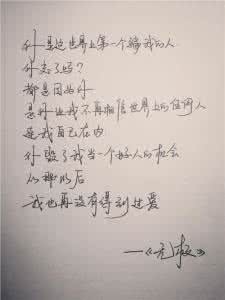 你是这世界上第一个骗我的人
你忘了吗?
都是因为你
是你让我不再相信世界上的任何人
是我自己在内
你毁了我当一个好人的机会
从那以后
我也再没有得到过爱
——《无极》